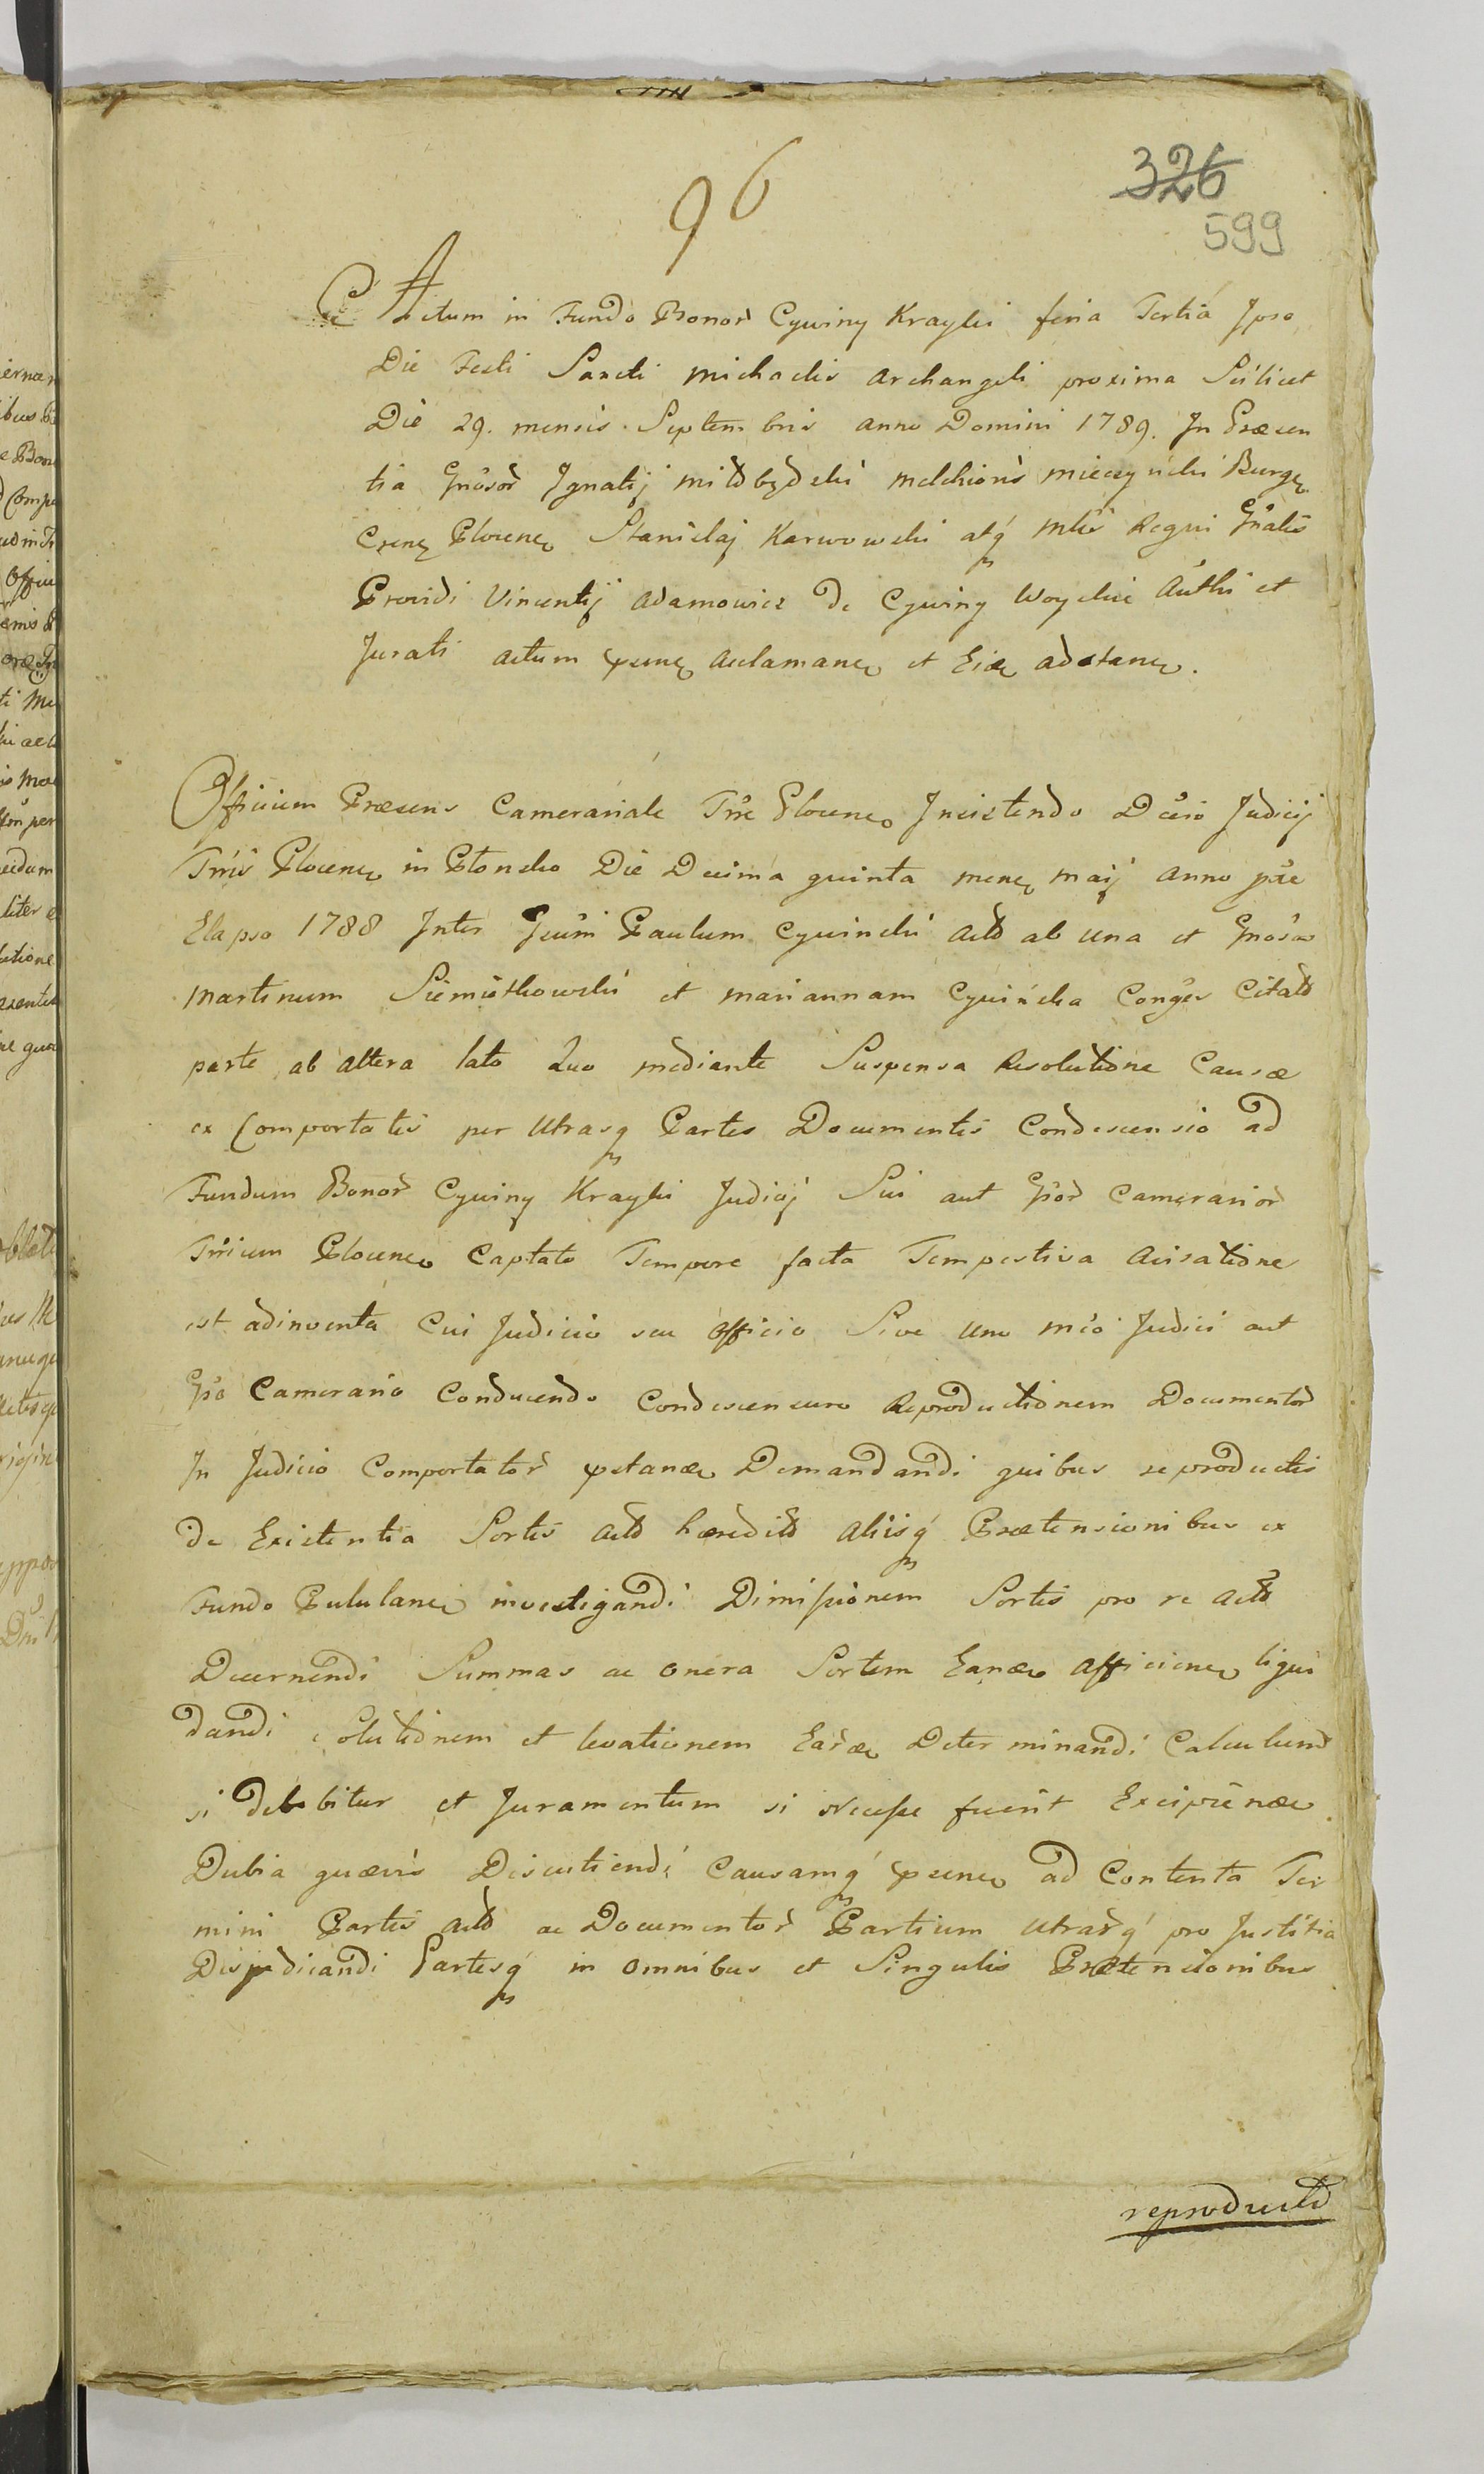 96
326
599
Actum in Fundo Bonor Cywiny Krayki feria Tertia Ipso
Die Festi Sancti Michaelis Archangeli proxima Scilicet
Die 29. mensis Septembris anno Domini 1789. In Præsen
tia Gnosor Ignatij Miłobędzki Melchioris Mieczyński Burg
Crenę Plocenę Stanislaj Karwowski atq Mtis Regni Gnalis
Providi Vincentij Adamowicz de Cywiny Woyskie Authi et
Jurati actum psenę Aclamanę et Eiæ adstanę.
Officium Præsens Camerariale Trre Plocenę Insistendo Dcsio Judicij
Trris Plocenę in Płonsko Die Decima quinta mensę maij anno pre
Elapso 1788 Inter Gsum Paulum Cywinski Actō ab una et Gnosos
Martinum Siemiątkowski et mariannam Cywińska Conges Citatō
parte ab altera lato Quo mediante Suspensa Resolutione Causæ
ex Comportatis per Utrasq Partes Documentis Condescensio ad
Fundum Bonor Cywiny Krayki Judicij Sui aut Gsor Camerarior
Trrium Plocenę Captato Tempore facta Tempestiva Avisatione
est adinventa Cui Judicio seu Officio Sive Uno Mco Judici aut
Gso Camerario Conducendo Condescensuro Reproductionem Documentor
In Judicio Comportator pstanæ Demandandi quibus reproductis
de Existentia Sortis Actō hæreditō Aliisq Prætensionibus ex
Fundo Pululanę investigandi Dimissionem Sortis pro re Actō
Decernendi Summas ac onera Sortem Eanæ Afficienę liqui
dandi solutionem et levationem Earæ Determinandi Calculumō
si debebitur et Juramentum si Necesse fuerit Excipienæ
Dubia quævis Discutiendi Causamq psenę ad Contenta Ter
mini Partis Actō ac Documentor Partium Utrarq pro Justitia
Disjudicandi Partesq in omnibus et Singulis Prætensionibus
reproductō